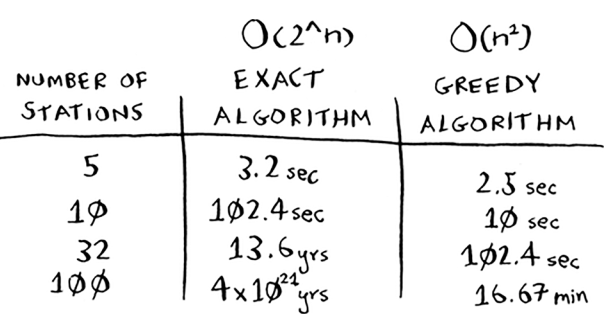 O(2^n) O(n²)
NUMBER OF STATIONS EXACT ALGORITHM GREEDY ALGORITHM
5 3.2 sec 2.5 sec
10 102.4 sec 10 sec
32 13.6 yrs 102.4 sec
100 4x10²¹ yrs 16.67 min